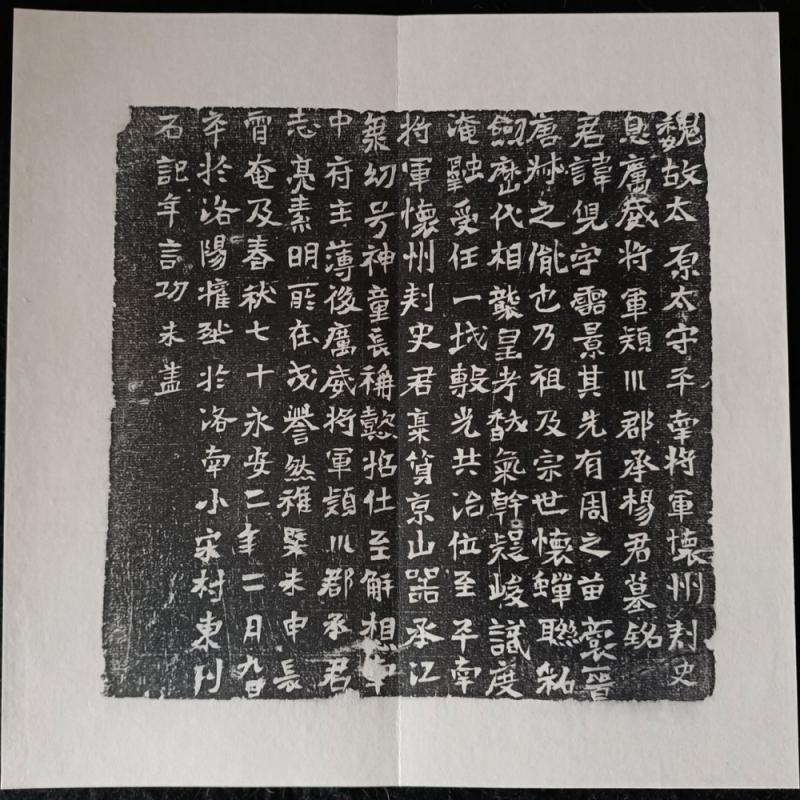 魏故太原太守平南將軍懷州刺史
息廣威將軍潁川郡丞楊君墓銘
君諱兒字靈景其先有周之苗裔晉
唐叔之胤也乃祖及宗世懷蟬聯紱
劍歷代相襲皇考馥氣幹凝峻識度
淹融受任一城轂光共治位至平南
將軍懷州刺史君稟質京山器承江
幼号神童長稱懿招仕至解想
中府主薄後廣威將軍潁川郡丞君
志亮素明所在茂譽然雅槩未申長
霄奄及春秋七十永安二年二月九日
卒於洛陽權 於洛南小宋村東刊
石記年言功未盖